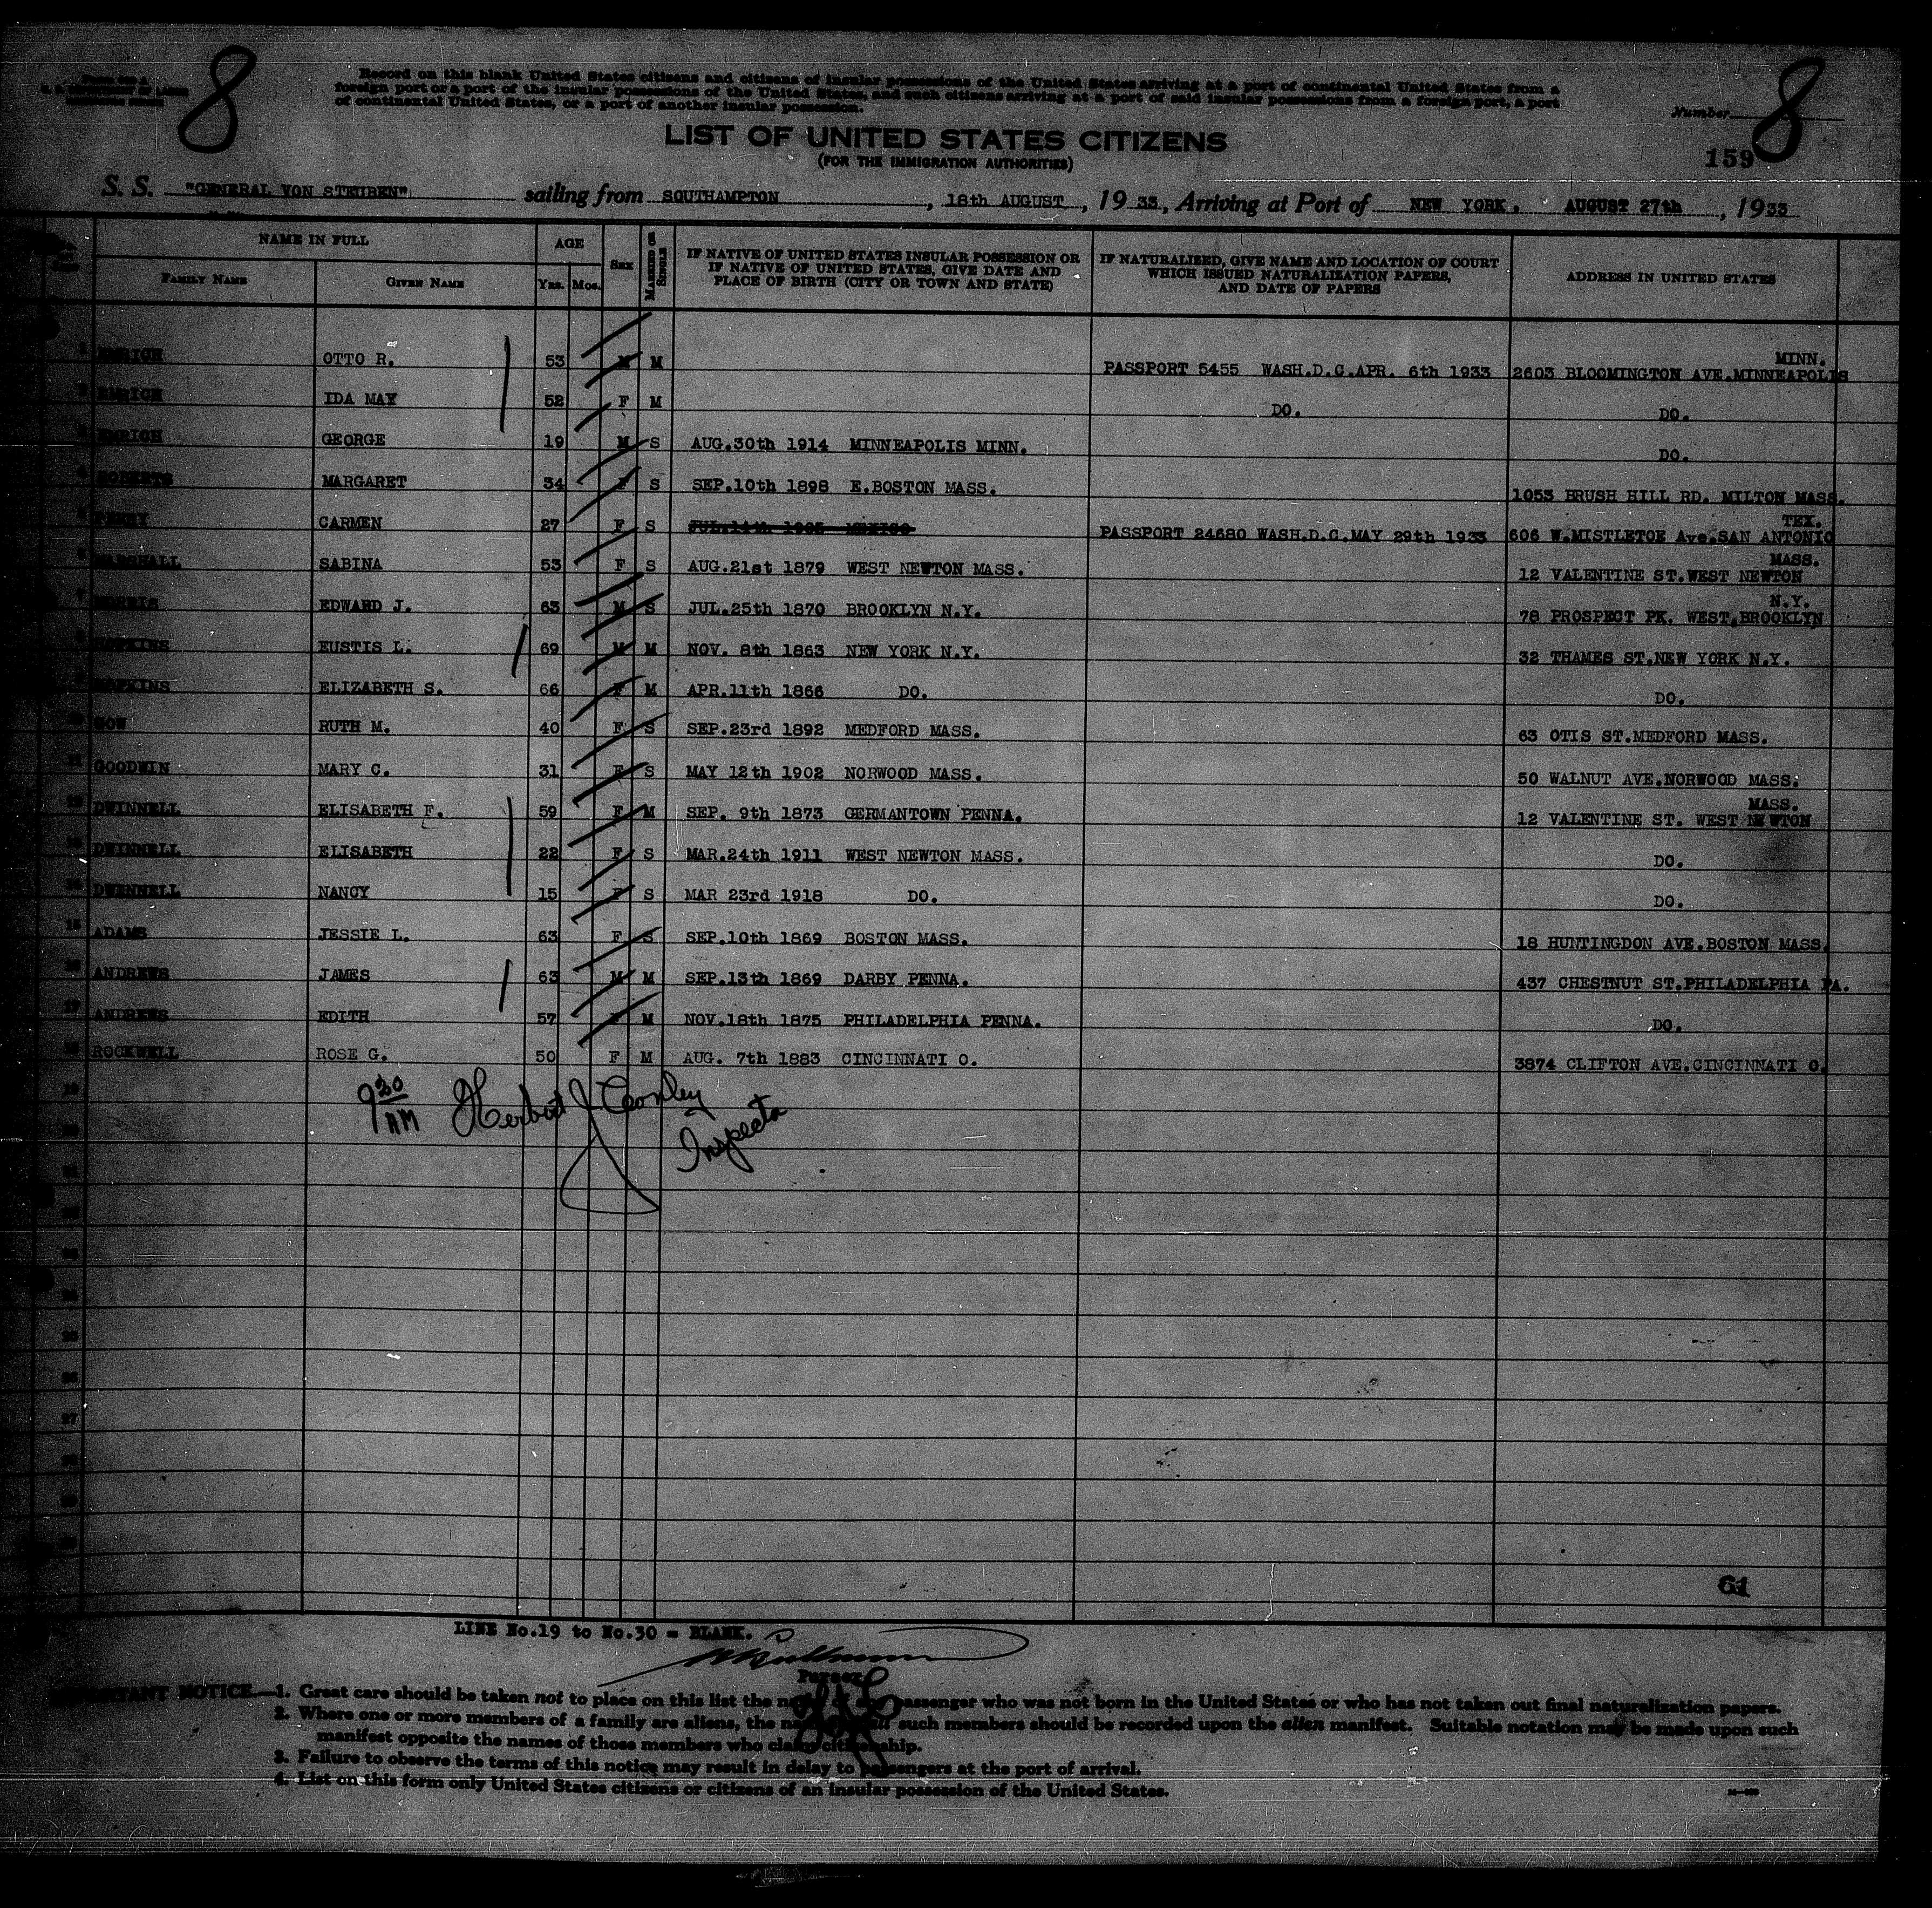 8
8
Record on this blank United States citizens and citizens of insular possessions of the United States arriving at a port of continental United States from a
foreign port or a port of the insular possessions of the United States, and such citizens arriving at a port of said insular possessions from a foreign port, a port
of continental United States, or a port of another insular possession.
Number
LIST OF UNITED STATES CITIZENS
(FOR THE IMMIGRATION AUTHORITIES)
159
S. S. "GENERAL VON STEUBEN" sailing from SOUTHAMPTON, 18th AUGUST, 19 33, Arriving at Port of NEW YORK. AUGUST 27th, 1933
NAME IN FULL
AGE
FAMILY NAME GIVEN NAME Yrs. Mos. SEX MARRIED OR SINGLE
IF NATIVE OF UNITED STATES INSULAR POSSESSION OR
IF NATIVE OF UNITED STATES, GIVE DATE AND
PLACE OF BIRTH (CITY OR TOWN AND STATE)
IF NATURALIZED, GIVE NAME AND LOCATION OF COURT
WHICH ISSUED NATURALIZATION PAPERS,
AND DATE OF PAPERS
ADDRESS IN UNITED STATES
EMRICH OTTO R. 53 M M PASSPORT 5455 WASH.D.C.APR. 6th 1933 2603 BLOOMINGTON AVE.MINNEAPOLIS MINN.
EMRICH IDA MAY 52 F M DO. DO.
EMRICH GEORGE 19 M S AUG.30th 1914 MINNEAPOLIS MINN. DO.
ROBERTS MARGARET 34 F S SEP.10th 1898 E.BOSTON MASS. 1053 BRUSH HILL RD. MILTON MASS.
CARMEN 27 F S PASSPORT 24680 WASH.D.C.MAY 29th 1933 606 W.MISTLETOE Ave.SAN ANTONIO TEX.
MARSHALL SABINA 53 F S AUG.21st 1879 WEST NEWTON MASS. 12 VALENTINE ST.WEST NEWTON MASS.
EDWARD J. 63 M S JUL.25th 1870 BROOKLYN N.Y. 78 PROSPECT PK. WEST,BROOKLYN N.Y.
HOPKINS EUSTIS L. 69 M M NOV. 8th 1863 NEW YORK N.Y. 32 THAMES ST.NEW YORK N.Y.
HOPKINS ELIZABETH S. 66 F M APR.11th 1866 DO. DO.
RUTH M. 40 F S SEP.23rd 1892 MEDFORD MASS. 63 OTIS ST.MEDFORD MASS.
GOODWIN MARY C. 31 F S MAY 12th 1902 NORWOOD MASS. 50 WALNUT AVE.NORWOOD MASS.
DWINNELL ELISABETH F. 59 F M SEP. 9th 1873 GERMANTOWN PENNA. 12 VALENTINE ST. WEST NEWTON MASS.
DWINNELL ELISABETH 22 F S MAR.24th 1911 WEST NEWTON MASS. DO.
DWINNELL NANCY 15 F S MAR 23rd 1918 DO. DO.
ADAMS JESSIE L. 63 F S SEP.10th 1869 BOSTON MASS. 18 HUNTINGDON AVE.BOSTON MASS.
ANDREWS JAMES 63 M M SEP.13th 1869 DARBY PENNA. 437 CHESTNUT ST.PHILADELPHIA PA.
17 ANDREWS EDITH 57 F M NOV.18th 1875 PHILADELPHIA PENNA. DO.
ROCKWELL ROSE G. 50 F M AUG. 7th 1883 CINCINNATI O. 3874 CLIFTON AVE.CINCINNATI O.
9 30 AM Herbert J Conley
Inspector
27
61
LINE No.19 to No.30 = BLANK.
Purser
IMPORTANT NOTICE—1. Great care should be taken not to place on this list the name of any passenger who was not born in the United States or who has not taken out final naturalization papers.
2. Where one or more members of a family are aliens, the names of all such members should be recorded upon the alien manifest. Suitable notation may be made upon such
manifest opposite the names of those members who claim citizenship.
3. Failure to observe the terms of this notice may result in delay to passengers at the port of arrival.
4. List on this form only United States citizens or citizens of an insular possession of the United States.